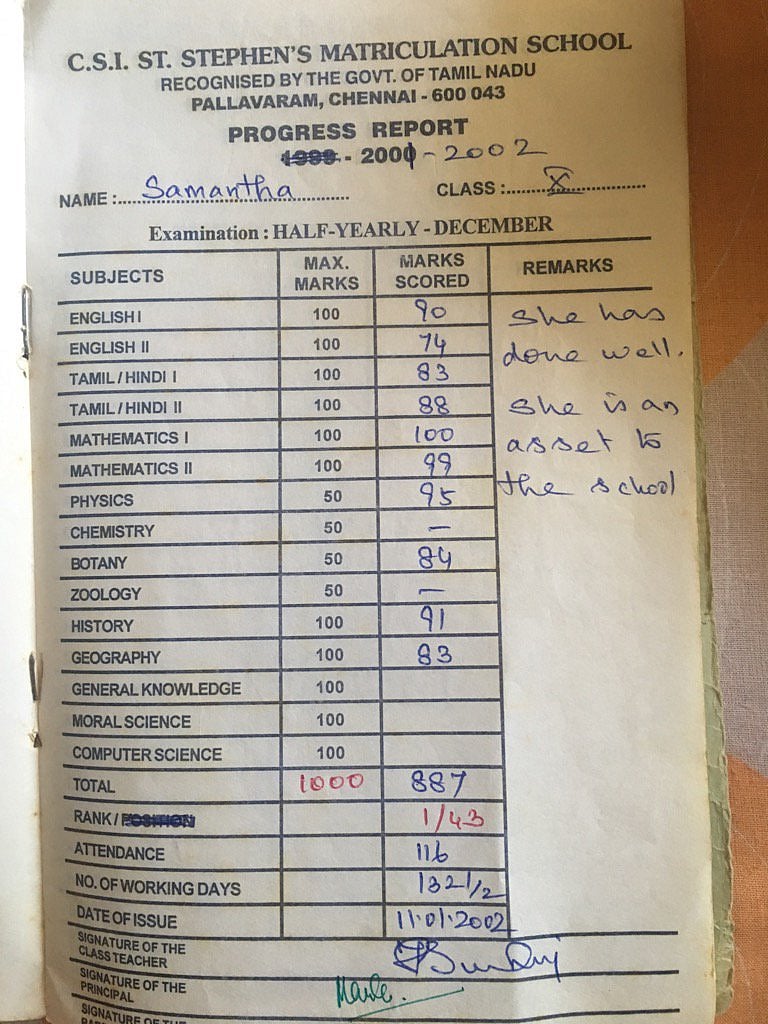 C.S.I. ST. STEPHEN'S MATRICULATION SCHOOL
RECOGNISED BY THE GOVT. OF TAMIL NADU
PALLAVARAM, CHENNAI - 600 043
PROGRESS REPORT
1999 - 2001 - 2002
NAME :..... Samantha ..... CLASS :..... X .....
Examination : HALF-YEARLY - DECEMBER
SUBJECTS MAX. MARKS MARKS SCORED REMARKS
ENGLISH I 100 90 She has
ENGLISH II 100 74 done well.
TAMIL / HINDI I 100 83
TAMIL / HINDI II 100 88 She is an
MATHEMATICS I 100 100 asset to
MATHEMATICS II 100 99 the school
PHYSICS 50 95
CHEMISTRY 50 —
BOTANY 50 84
ZOOLOGY 50 —
HISTORY 100 91
GEOGRAPHY 100 83
GENERAL KNOWLEDGE 100
MORAL SCIENCE 100
COMPUTER SCIENCE 100
TOTAL 1000 887
RANK / POSITION 1/43
ATTENDANCE 116
NO. OF WORKING DAYS 132 1/2
DATE OF ISSUE 11.01.2002
SIGNATURE OF THE
CLASS TEACHER
SIGNATURE OF THE
PRINCIPAL
SIGNATURE OF THE